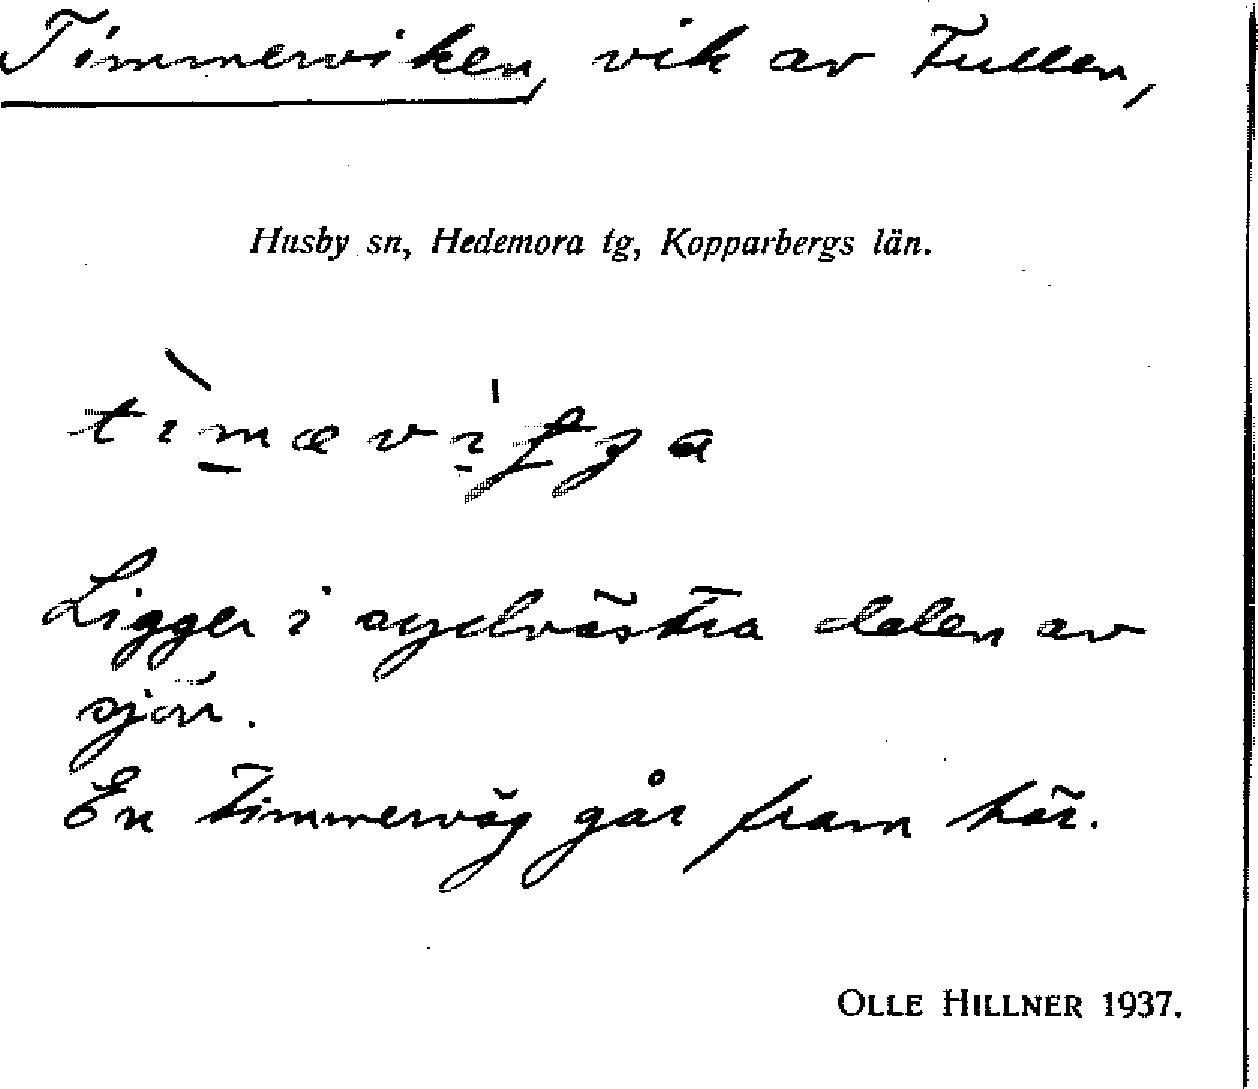 Timmerviken, vik av Fullen,
Husby sn, Hedemora tg, Kopparbergs län.
Ligger i sydvästra delen av
sjön.
En timmerväg går fram här.
OLLE HILLNER 1937.